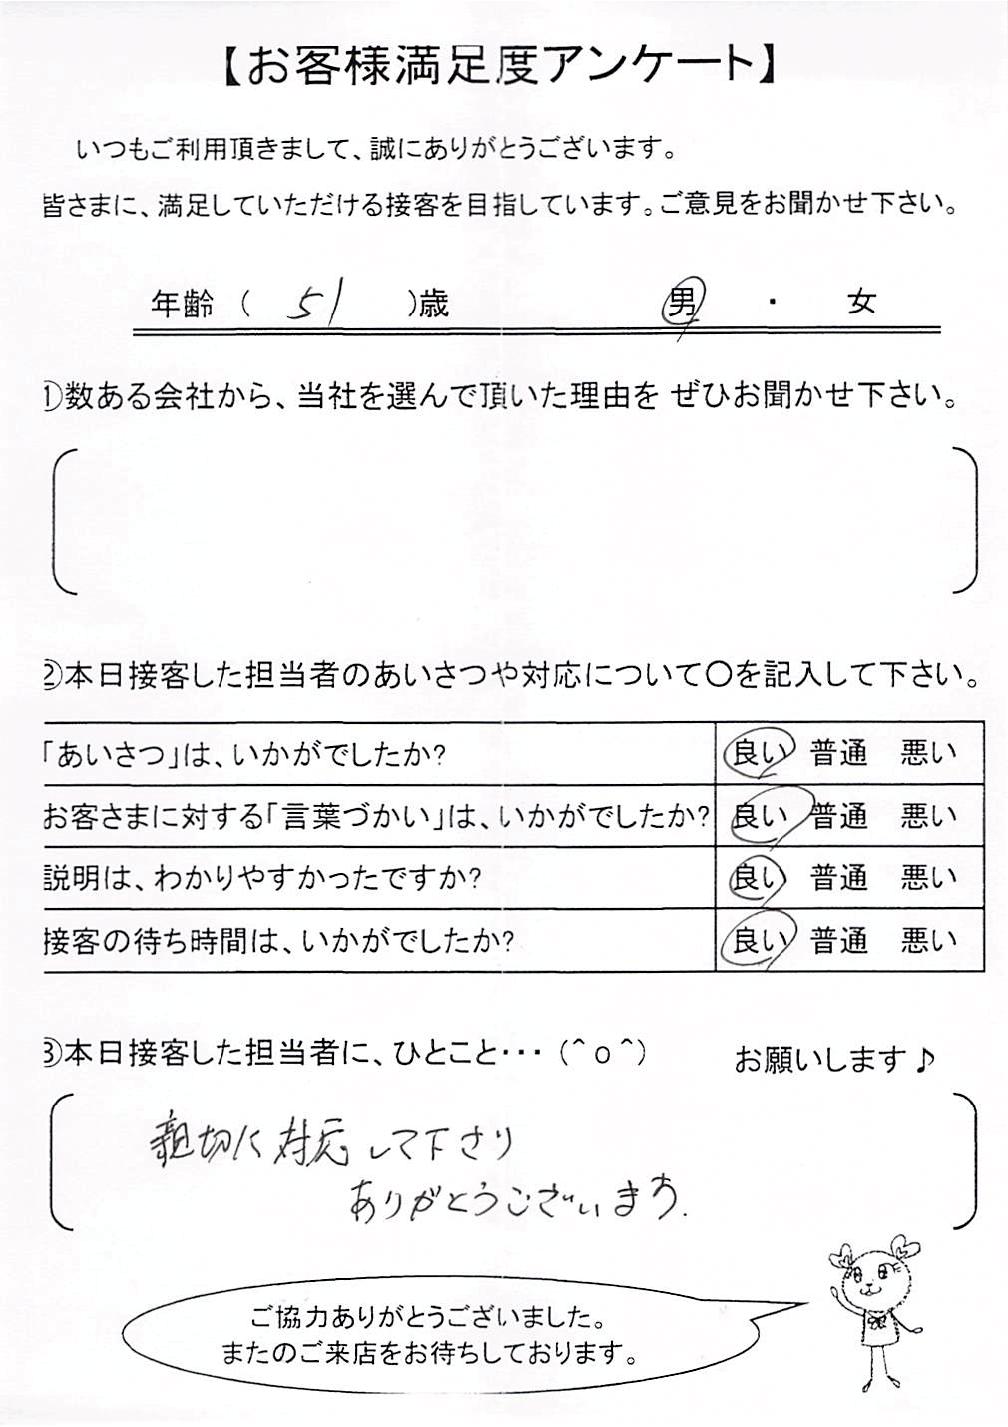 【お客様満足度アンケート】
いつもご利用頂きまして、誠にありがとうございます。
皆さまに、満足していただける接客を目指しています。ご意見をお聞かせ下さい。
年齢 ( 51 )歳 男 ・ 女
①数ある会社から、当社を選んで頂いた理由を ぜひお聞かせ下さい。
②本日接客した担当者のあいさつや対応について〇を記入して下さい。
「あいさつ」は、いかがでしたか? 良い 普通 悪い
お客さまに対する「言葉づかい」は、いかがでしたか? 良い 普通 悪い
説明は、わかりやすかったですか? 良い 普通 悪い
接客の待ち時間は、いかがでしたか? 良い 普通 悪い
③本日接客した担当者に、ひとこと・・・ (^o^) お願いします♪
親切に対応して下さり
ありがとうございます.
ご協力ありがとうございました。
またのご来店をお待ちしております。